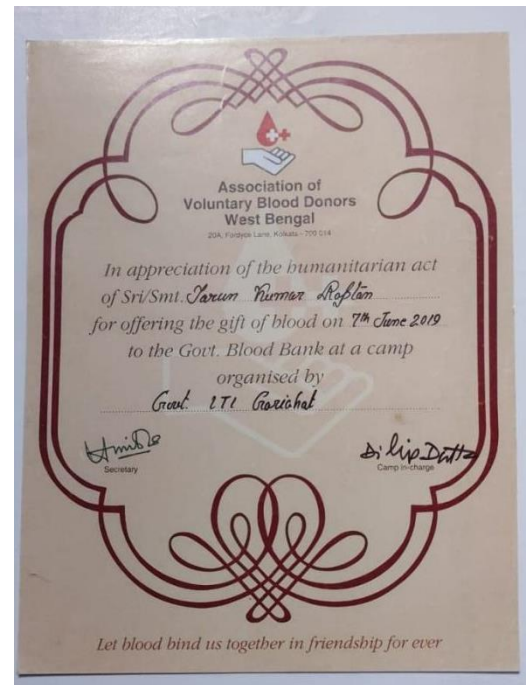 Association of
Voluntary Blood Donors
West Bengal
20A, Fordyce Lane, Kolkata - 700 014
In appreciation of the humanitarian act
of Sri/Smt. Tarun Kumar
for offering the gift of blood on 7th June 2019
to the Govt. Blood Bank at a camp
organised by
Govt. ITI Gariahat
Secretary
Dilip Dutta
Camp in-charge
Let blood bind us together in friendship for ever